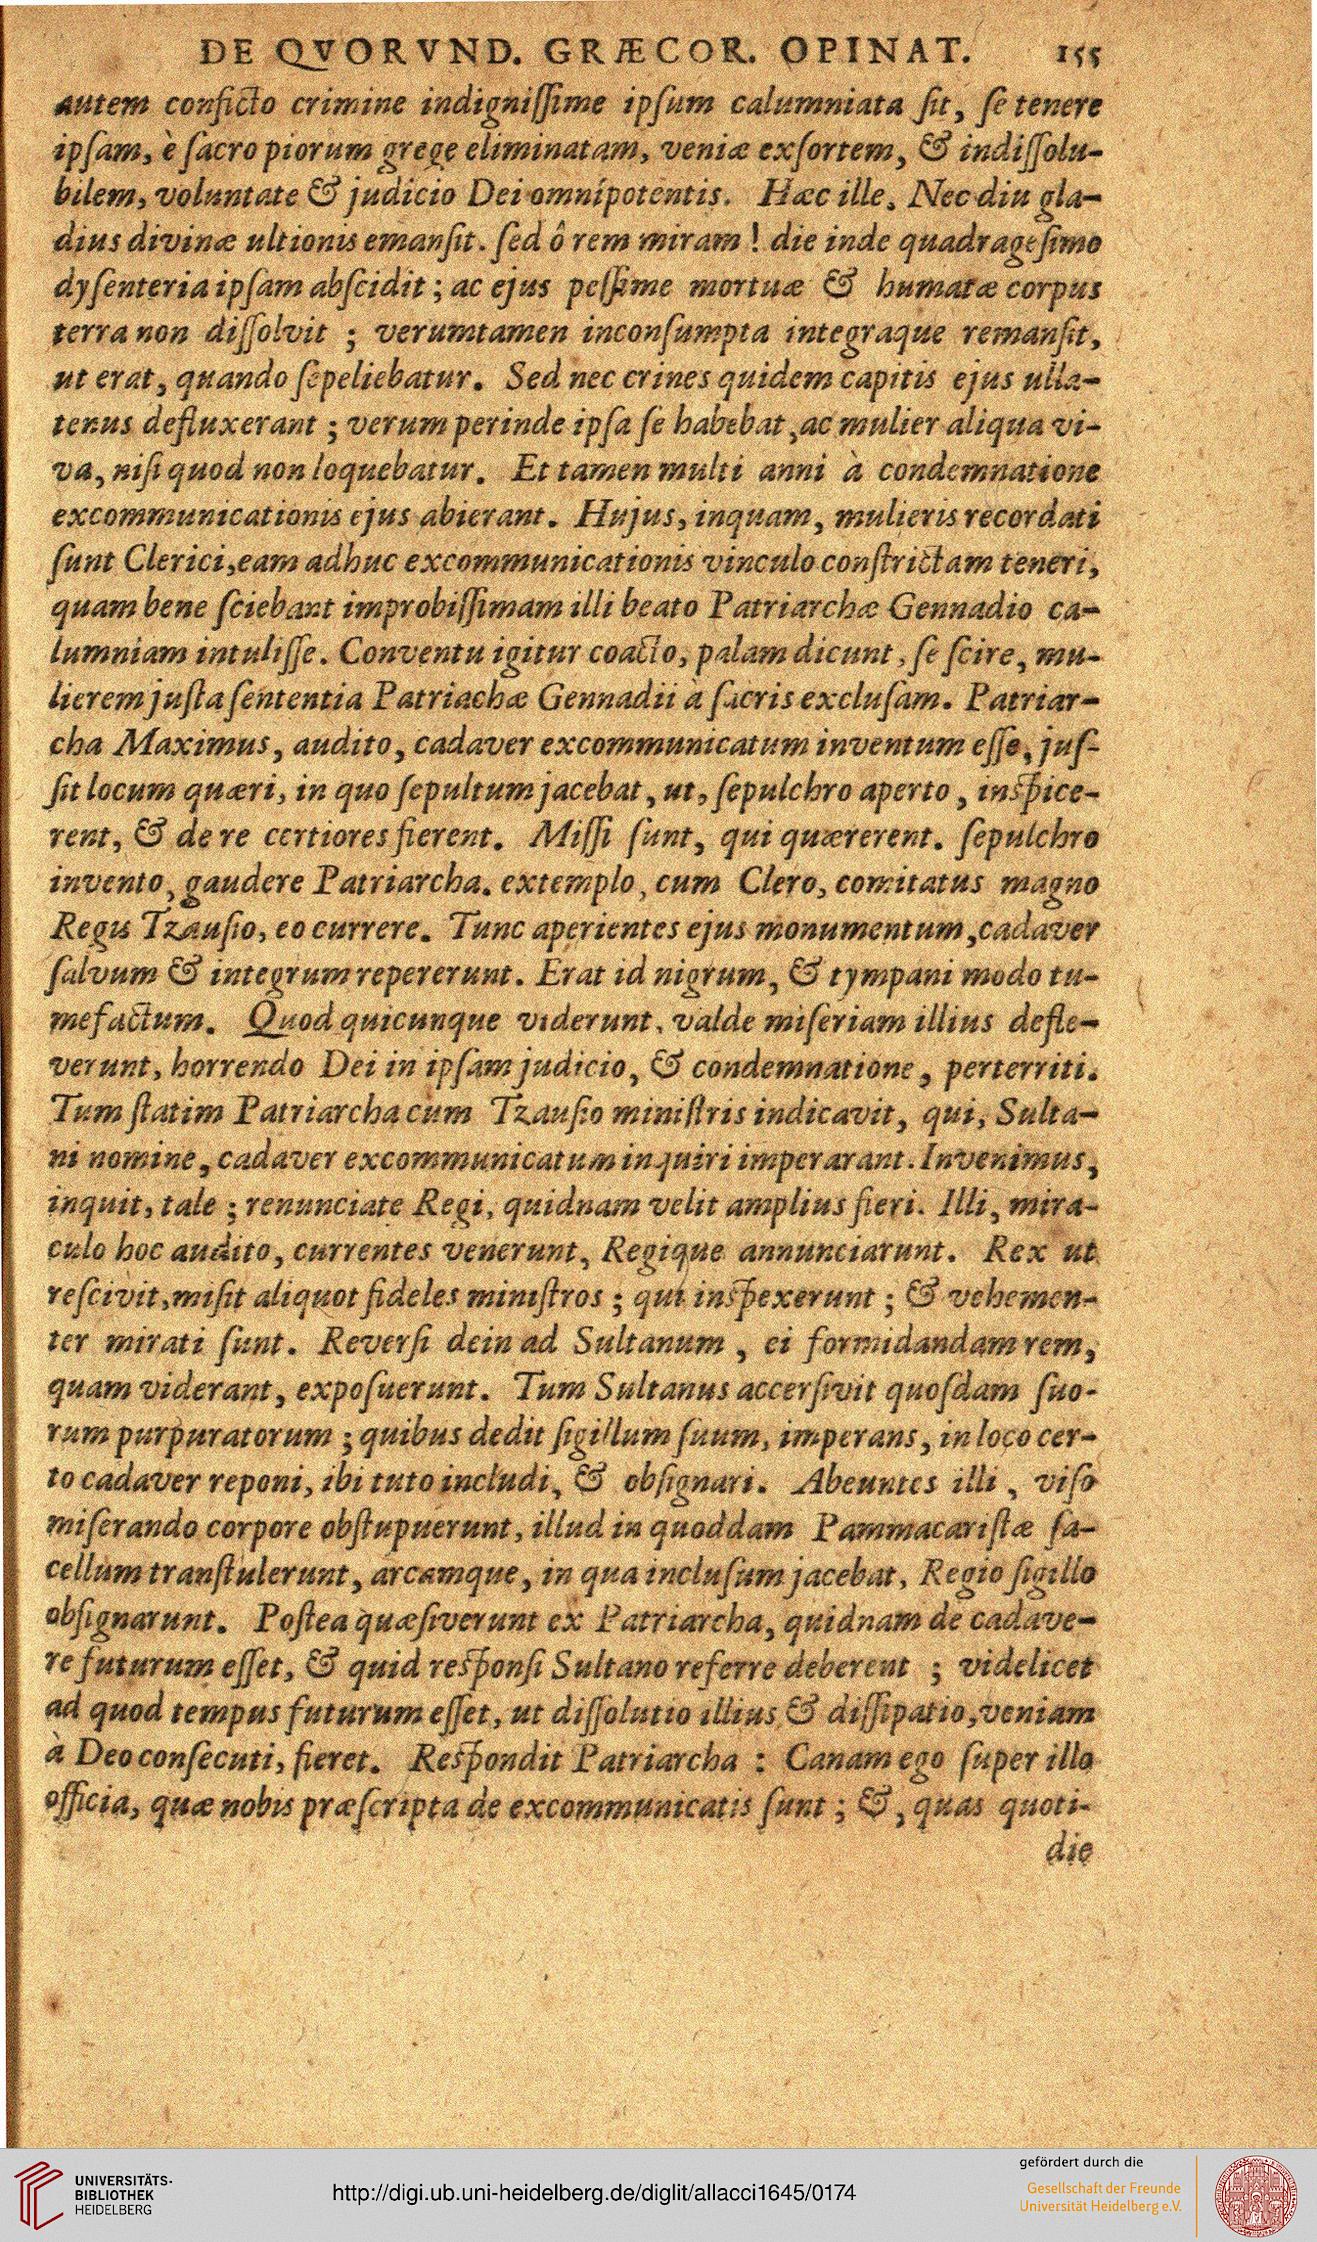 DE QVORVND. GRÆCOR. OPINAT. 155
autem conficto crimine indigniſſime ipſum calumniata ſit, ſe tenere
ipſam, è ſacro piorum grege eliminatam, veniæ exſortem, & indiſſolu-
bilem, voluntate & judicio Dei omnipotentis. Hæc ille. Nec diu gla-
dius divinæ ultionis emanſit. ſed ô rem miram! die inde quadrageſimo
dyſenteria ipſam abſcidit; ac ejus peſſime mortuæ & humatæ corpus
terra non diſſolvit; verumtamen inconſumpta integraque remanſit,
ut erat, quando ſepeliebatur. Sed nec crines quidem capitis ejus ulla-
tenus defluxerant; verum perinde ipſa ſe habebat, ac mulier aliqua vi-
va, niſi quod non loquebatur. Et tamen multi anni à condemnatione
excommunicationis ejus abierant. Hujus, inquam, mulieris recordati
ſunt Clerici, eam adhuc excommunicationis vinculo conſtrictam teneri,
quam bene ſciebant improbiſſimam illi beato Patriarchæ Gennadio ca-
lumniam intuliſſe. Conventu igitur coacto, palam dicunt, ſe ſcire, mu-
lierem juſta ſententia Patriachæ Gennadii à ſacris excluſam. Patriar-
cha Maximus, audito, cadaver excommunicatum inventum eſſe, juſ-
ſit locum quæri, in quo ſepultum jacebat, ut, ſepulchro aperto, inſpice-
rent, & de re certiores fierent. Miſſi ſunt, qui quærerent. ſepulchro
invento, gaudere Patriarcha. extemplo, cum Clero, comitatus magno
Regis Tzauſio, eo currere. Tunc aperientes ejus monumentum, cadaver
ſalvum & integrum repererunt. Erat id nigrum, & tympani modo tu-
mefactum. Quod quicunque viderunt, valde miſeriam illius defle-
verunt, horrendo Dei in ipſam judicio, & condemnatione, perterriti.
Tum ſtatim Patriarcha cum Tzauſio miniſtris indicavit, qui, Sulta-
ni nomine, cadaver excommunicatum inquiri imperarant. Invenimus,
inquit, tale; renunciate Regi, quidnam velit amplius fieri. Illi, mira-
culo hoc audito, currentes venerunt, Regique annunciarunt. Rex ut
reſcivit, miſit aliquot fideles miniſtros; qui inſpexerunt; & vehemen-
ter mirati ſunt. Reverſi dein ad Sultanum, ei formidandam rem,
quam viderant, expoſuerunt. Tum Sultanus accerſivit quoſdam ſuo-
rum purpuratorum; quibus dedit ſigillum ſuum, imperans, in loco cer-
to cadaver reponi, ibi tuto includi, & obſignari. Abeuntes illi, viſo
miſerando corpore obſtupuerunt, illud in quoddam Pammacariſtæ ſa-
cellum tranſtulerunt, arcamque, in qua incluſum jacebat, Regio ſigillo
obſignarunt. Poſtea quæſiverunt ex Patriarcha, quidnam de cadave-
re futurum eſſet, & quid reſponſi Sultano referre deberent; videlicet
ad quod tempus futurum eſſet, ut diſſolutio illius & diſſipatio, veniam
à Deo conſecuti, fieret. Reſpondit Patriarcha: Canam ego ſuper illo
officia, quæ nobis præſcripta de excommunicatis ſunt; &, quas quoti-
die
UNIVERSITÄTS-
BIBLIOTHEK
HEIDELBERG
http://digi.ub.uni-heidelberg.de/diglit/allacci1645/0174
gefördert durch die
Gesellschaft der Freunde
Universität Heidelberg e.V.